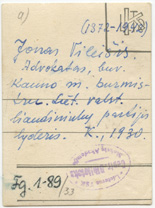 a)
(1872-1942)
Jonas Vileišis.
Advokatas, buv.
Kauno m. burmis-
Liet. valst.
liaudininkų partijos
lyderis. K., 1930.
Fg. 1-89/33